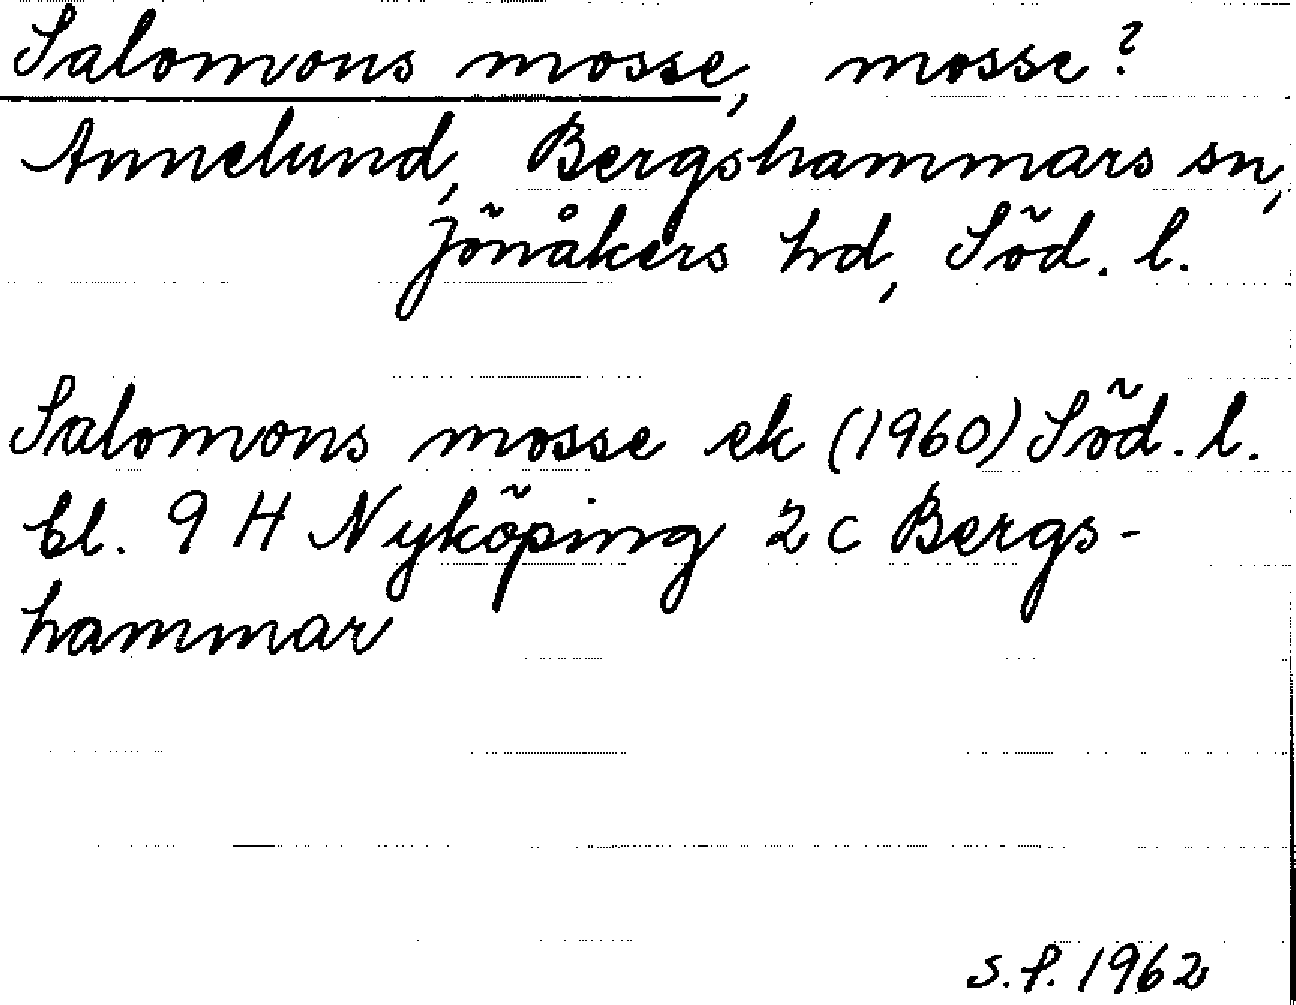 Salomons mosse, mosse?
Annelund, Bergshammars sn,
Jönåkers hd, Söd. l.
Salomons mosse ek (1960) Söd. l.
bl. 9 H Nyköping 2 c Bergs-
hammar
S.P. 1962